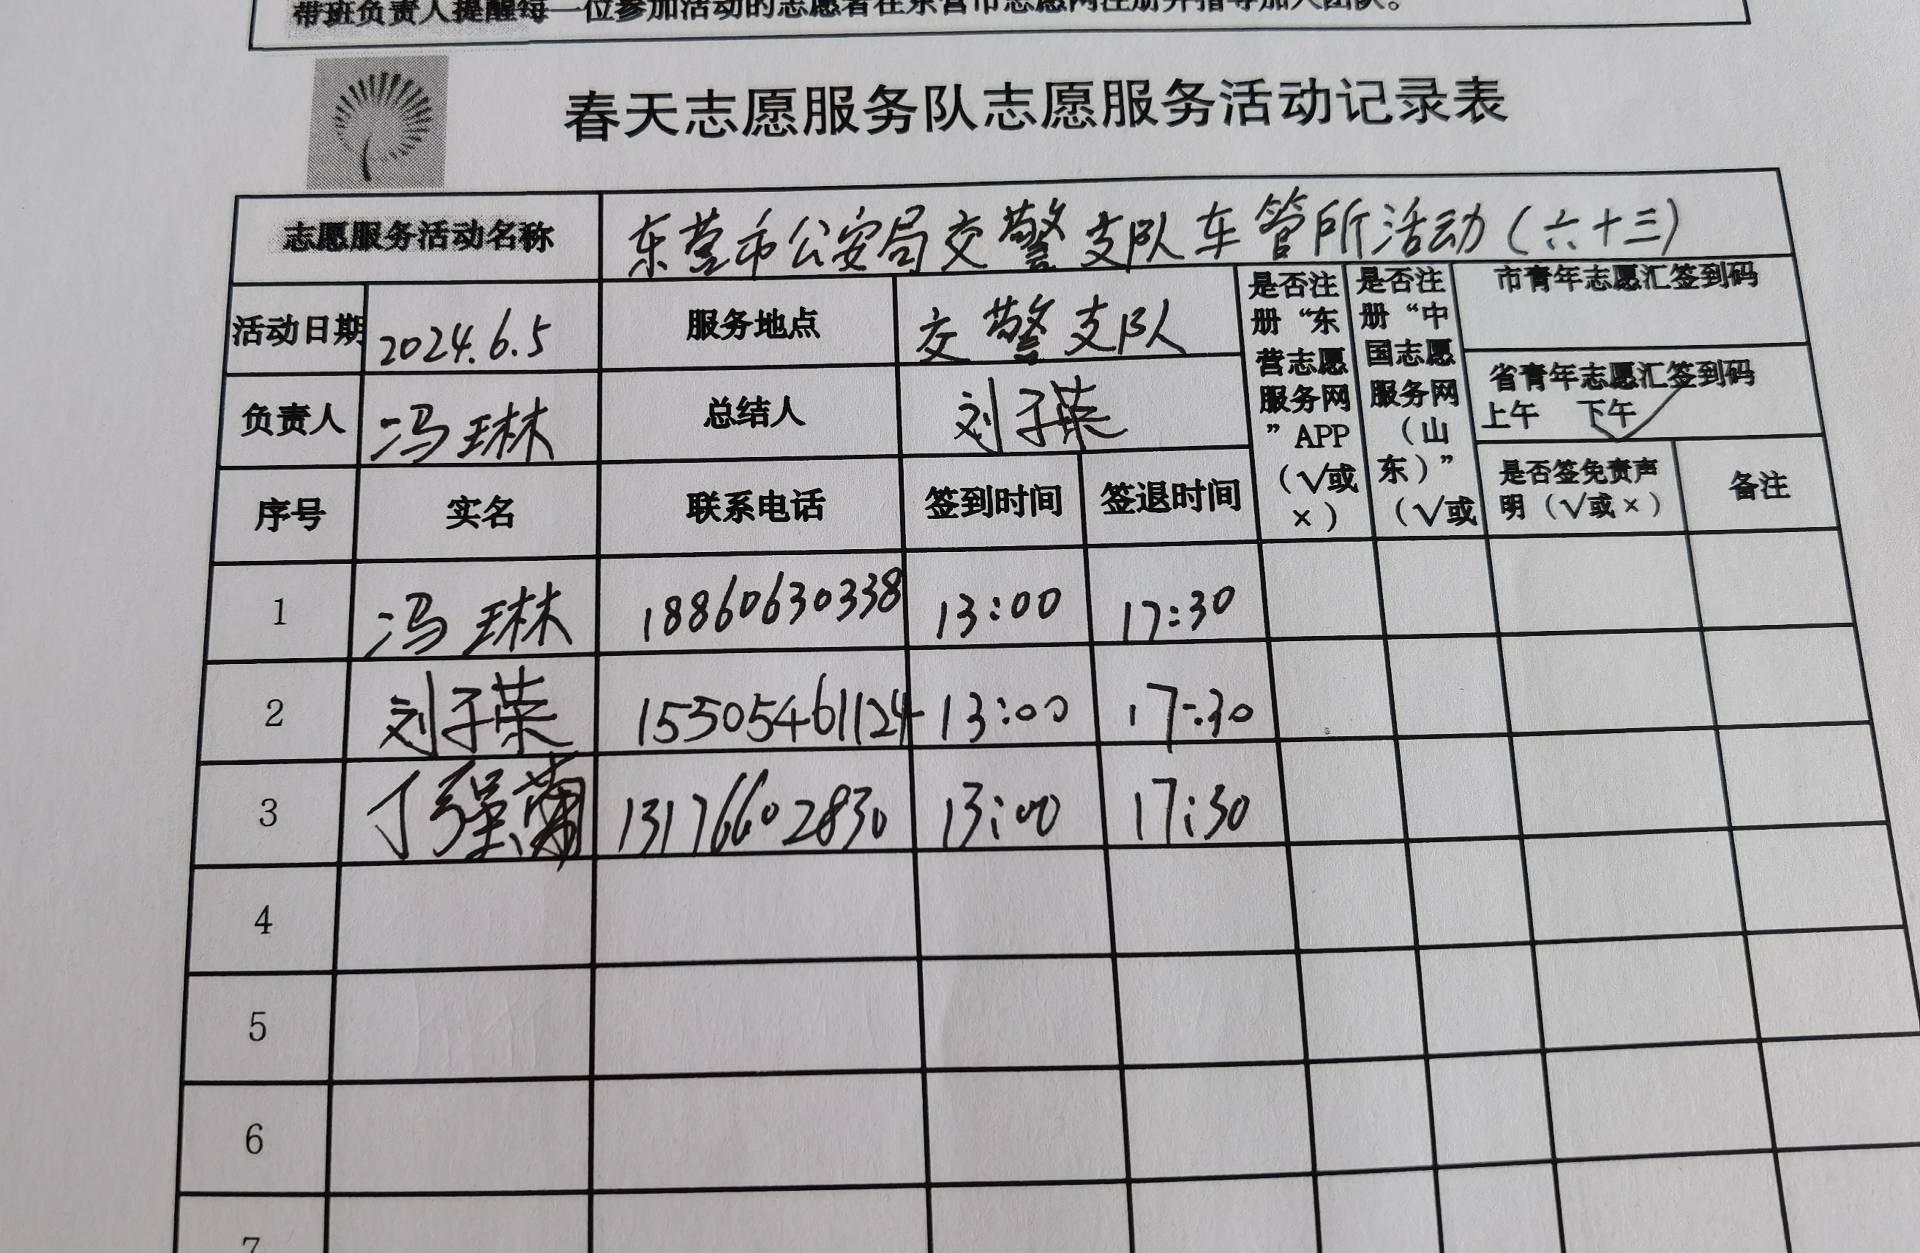 带班负责人提醒每一位参加活动的志愿者在东营市志愿网注册并指导加入团队。
春天志愿服务队志愿服务活动记录表
志愿服务活动名称 东营市公安局交警支队车管所活动(六十三)
活动日期 2024.6.5 服务地点 交警支队
负责人 冯琳 总结人 刘子荣
是否注册“东营志愿服务网”APP（√或×）
是否注册“中国志愿服务网（山东）”（√或
市青年志愿汇签到码
省青年志愿汇签到码
上午 下午√
序号 实名 联系电话 签到时间 签退时间 是否签免责声明（√或×） 备注
1 冯琳 18860630338 13:00 17:30
2 刘子荣 15505461124 13:00 17:30
3 丁强 13176602830 13:00 17:30
4
5
6
7